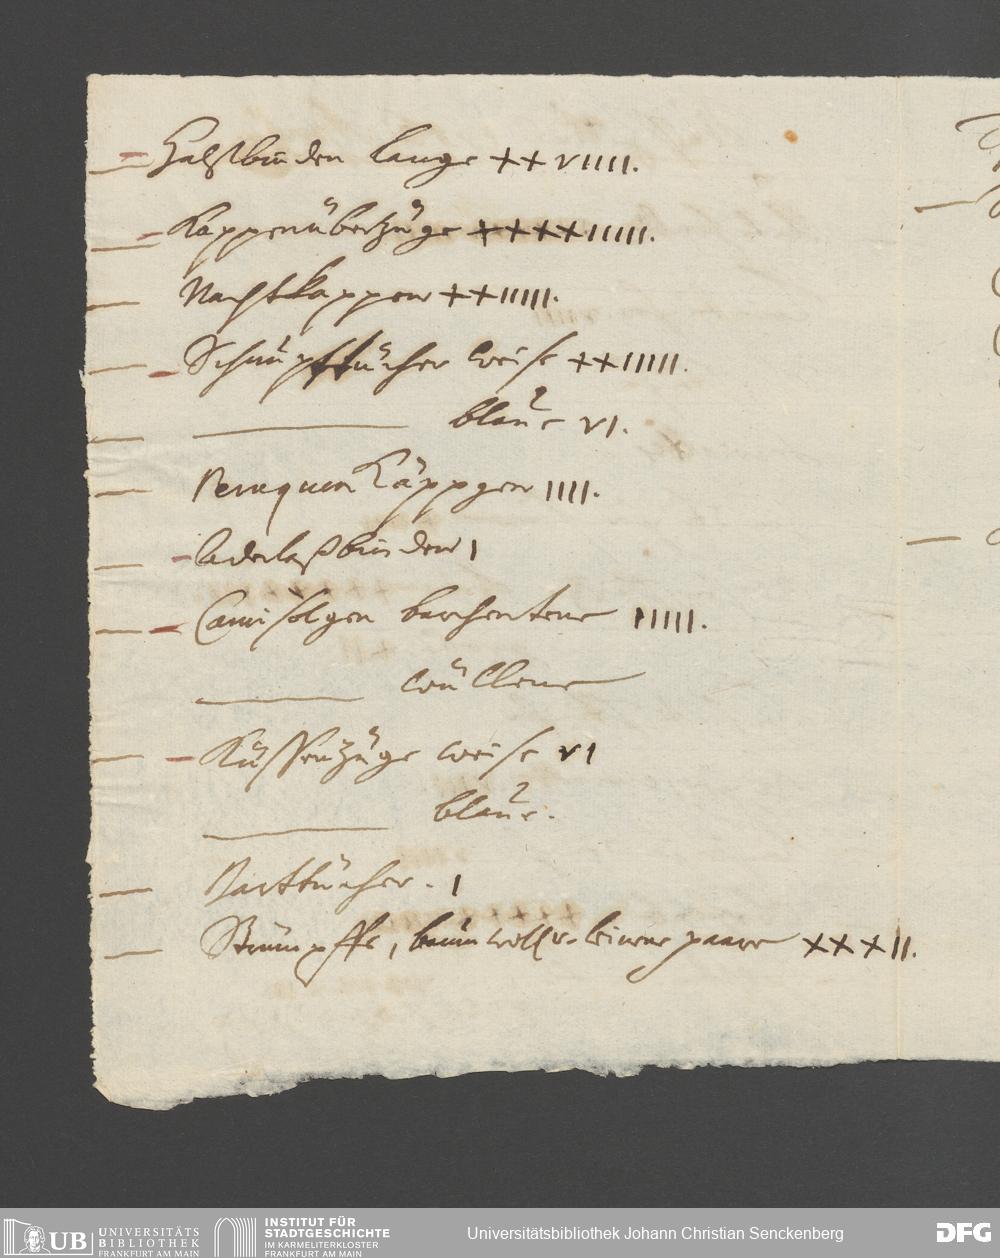 Halßbinden lange ++viiii.
Kappenüberzüge ++++iiiii.
Nachtkappen ++iiiii.
Schnüpfftücher weise ++iiiii.
——— blaue vi.
Peruquen Käppgen iiii.
Aderlaßbinden i
Camisolgen barchentene iiiii.
——— wüllene
Küssenzüge weise vi
——— blaue.
Barttücher. i
Strümpffe, baumwoll u. leinene paare xxxii.
UB UNIVERSITÄTS
BIBLIOTHEK
FRANKFURT AM MAIN
INSTITUT FÜR
STADTGESCHICHTE
IM KARMELITERKLOSTER
FRANKFURT AM MAIN
Universitätsbibliothek Johann Christian Senckenberg
DFG